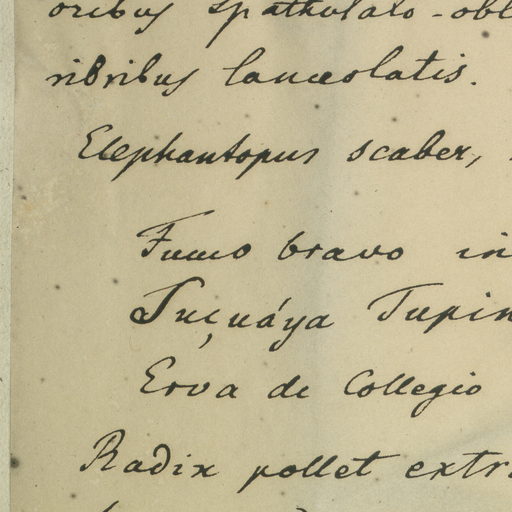 oribus spathulato-obl
rioribus lanceolatis.
Elephantopus scaber,
Fumo bravo in
Suçuáya Tupin
Erva de Collegio
Radix pollet extr